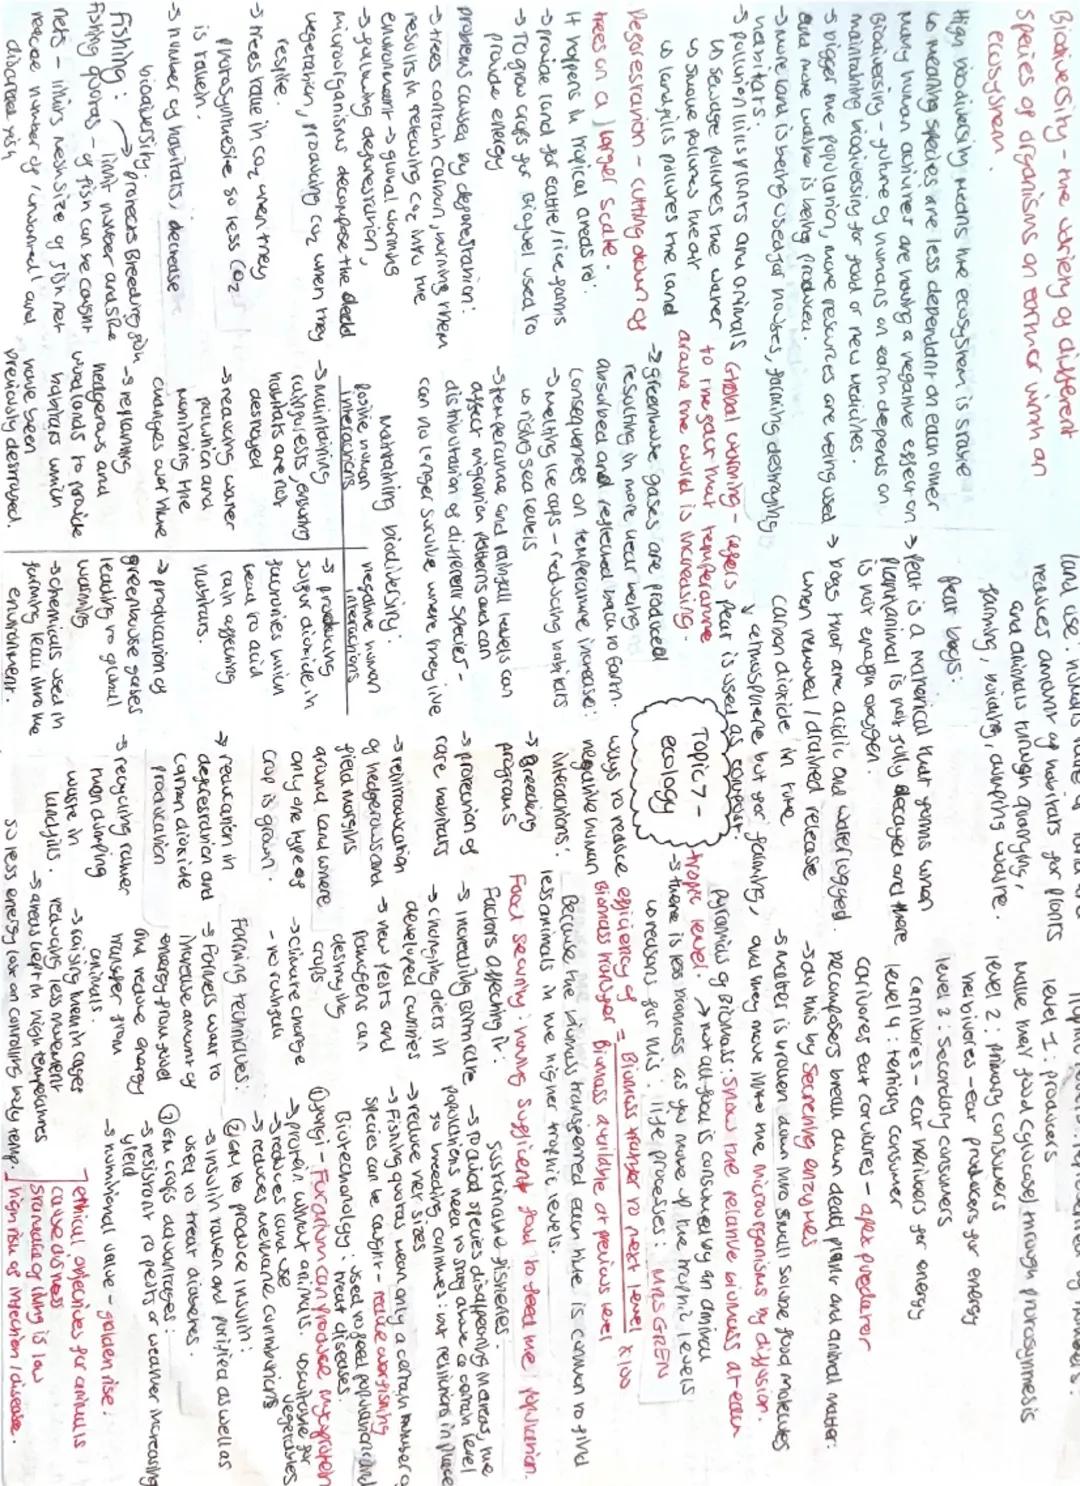 Biodiversity - the variety of different
species of organisms on earth or within an
ecosystem.
High biodiversity means the ecosystem is stable
↳ meaning species are less dependant on each other
Many human activities are having a negative effect on
Biodiversity - future of humans on earth depends on
maintaining biodiversity for food or new medicines.
→ bigger the population, more resources are being used
and more waste is being produced.
→ more land is being used for houses, farming destroying
habitats.
→ pollution kills plants and animals
↳ sewage pollutes the water
↳ smoke pollutes the air
↳ landfills pollutes the land
Deforestation - cutting down of
trees on a larger scale.
It happens in tropical areas to:
→ provide land for cattle/rice farms
→ To grow crops for Biofuel used to
provide energy
problems caused by deforestation:
→ trees contain carbon, burning them
results in releasing CO2 into the
environment → global warming
→ following deforestation,
microorganisms decompose the dead
vegetation, producing CO2 when they
respire.
→ trees take in CO2 when they
photosynthesise so less CO2
is taken.
→ number of habitats decrease
biodiversity.
fishing: → protects Breeding fish
fishing quotas - limit number and size
of fish can be caught
nets - limits mesh size of fish net
reduce number of 'unwanted' and
discarded fish
Global warming - refers
to the fact that temperature
around the world is increasing.
→ greenhouse gases are produced
resulting in more heat being
absorbed and reflected back to Earth.
Consequences on temperature increase:
→ melting ice caps - reducing habitats
↳ rising sea levels
→ temperature and rainfall levels can
affect migration patterns and can
distribution of different species -
can no longer survive where they live
Maintaining biodiversity:
Positive human
interactions
→ Maintaining
rainforests, ensuring
habitats are not
destroyed
→ reducing water
pollution and
monitoring the
changes over time
→ replanting
hedgerows and
woodlands to provide
habitats which
have been
previously destroyed.
negative human
interactions
→ producing
sulfur dioxide in
factories which
lead to acid
rain affecting
habitats.
→ production of
greenhouse gases
leading to global
warming
→ chemicals used in
farming leak into the
environment.
reduces amount of habitats for plants
and animals through quarrying,
farming, building, dumping waste.
peat bogs:
→ peat is a material that forms when
plant/animal is not fully decayed and there
is not enough oxygen.
→ bogs that are acidic and waterlogged.
when removed / drained release
carbon dioxide in the
atmosphere
Peat is used as compost
but for farming,
Topic 7 -
ecology
ways to reduce
negative human
interactions:
→ Breeding
programs
→ protection of
rare habitats
→ reintroduction
of hedgerows and
field margins
around land where
only one type of
crop is grown.
→ reduction in
deforestation and
carbon dioxide
production
→ recycling rather
than dumping
waste in
landfills.
level 1: producers
make their food (glucose) through photosynthesis
level 2: primary consumers
herbivores - eat producers for energy
level 3: Secondary consumers
carnivores - eat herbivores for energy
level 4: tertiary consumer
carnivores eat carnivores - apex predator
Decomposers break down dead plant and animal matter:
→ do this by secreting enzymes
→ matter is broken down into small soluble food molecules
and they move into the microorganisms by diffusion.
pyramids of Biomass: show the relative biomass at each
trophic level.
→ not all food is consumed by an animal
→ there is less biomass as you move up the trophic levels
↳ reasons for this: life processes: MRS GREN
efficiency of
Biomass transfer = Biomass transfer to next level
Biomass available at previous level x 100
Because the biomass transferred each time is common to find
less animals in the higher trophic levels.
Food security: having sufficient food to feed the population.
Factors affecting it:
→ increasing Birth rate
→ changing diets in
developed countries
→ new pests and
pathogens can
destroying
crops.
→ climate change
- no rainfall
Farming techniques:
→ Farmers want to
increase amount of
energy from food
and reduce energy
transfer from
animals.
→ raising them in cages
reducing less movement
→ areas kept in high temperatures
so less energy lost on controlling body temp.
ethical objectives for animals
cause distress
standard of living is low
high risk of infection / disease.
Sustainable fisheries:
→ to avoid species disappearing in areas, the
populations need to stay above a certain level
so breeding continues: put restrictions in place
→ reduce net sizes
→ Fishing quotas mean only a certain number of
species can be caught - reduce overfishing
Biotechnology: used to feed populations and
treat diseases.
① fungi - Fusarium can produce mycoprotein
→ protein without animals. ↳ suitable for
vegetables
→ reduces land use
→ reduces methane contributions
② GM to produce insulin:
→ insulin taken and purified as well as
used to treat diabetes.
③ GM crops advantages:
→ resistant to pests or weather increasing
yield
→ nutritional value - golden rise!